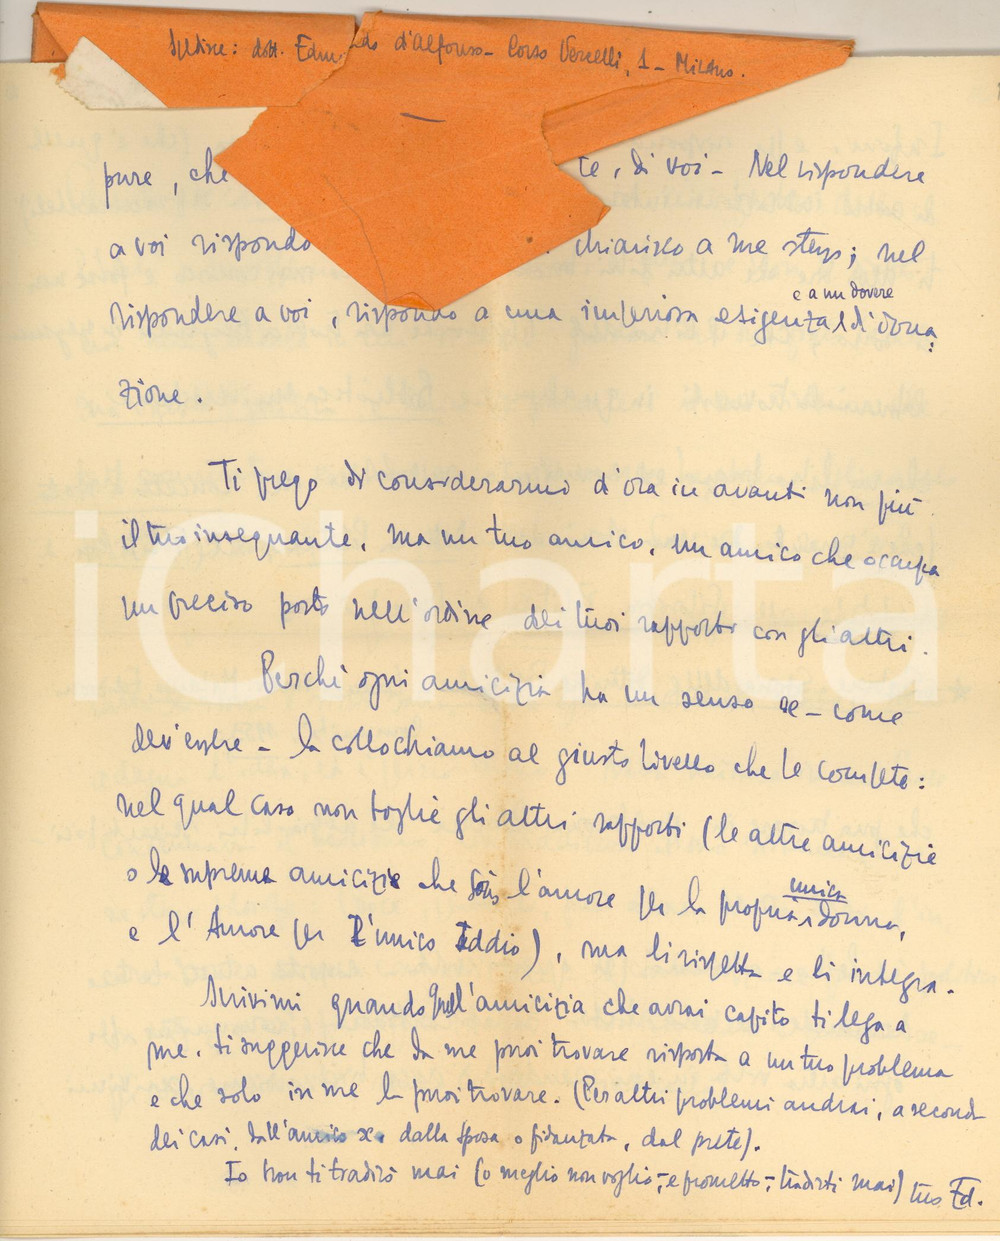 Spedisce: dott. Edmondo d'Alfonso - Corso Vercelli, 1 - Milano.
pure, che te, di voi - Nel rispondere
a voi rispondo chiarisco a me stesso; nel
rispondere a voi, rispondo a una imperiosa esigenza e a un dovere di dona:
zione.
Ti prego di considerarmi d'ora in avanti non più
il tuo insegnante, ma un tuo amico, un amico che occupa
un preciso posto nell'ordine dei tuoi rapporti con gli altri.
Perché ogni amicizia ha un senso se - come
dev'essere - la collochiamo al giusto livello che le compete:
nel qual caso non toglie gli altri rapporti (le altre amicizie
o le supreme amicizie che sono l'amore per la propria unica donna,
e l'Amore per l'unico Iddio), ma li rispetta e li integra.
Scrivimi quando quell'amicizia che avrai capito ti lega a
me, ti suggerisce che da me puoi trovare risposta a un tuo problema
e che solo in me la puoi trovare. (Per altri problemi andrai, a seconda
dei casi, dall'amico x, dalla sposa o fidanzata, dal prete).
Io non ti tradirò mai (o meglio non voglio, - e prometto, - tradirti mai) tuo Ed.
iCharta